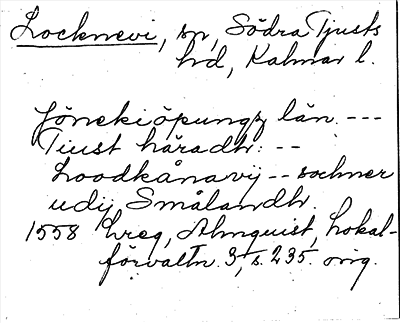 Locknevi, sn, Södra Tjusts
hd, Kalmar l.
Jönekiöpungz län. ---
Tiust häradh: --
Loodkånavij -- sochner
udij Smålandh.
1558 hreg, Almquist, Lokal-
förvaltn. I 3, s. 235. orig.